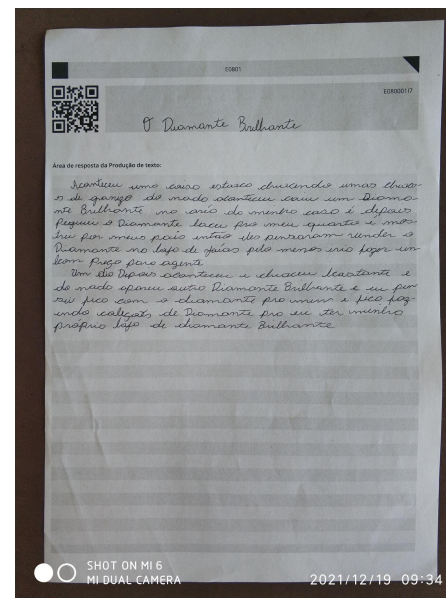 E0801
E080001I7
O Diamante Brilhante
Área de resposta da Produção de texto:
Aconteceu uma coisa estava chuvendo umas chuva
s de granizo do nada aconteceu caiu um Diama
nte Brilhante no do minha casa é depois
Peguei o Diamante pro meu quarto é mos
trei por meus pais então eles pensaram vender o
Diamante na loja de joias pelo menos iria fazer um
bom Preço para agente.
Um dia Depois aconteceu e choveu bastante e
do nada apareu outro Diamante Brilhante e eu pen
sei fico com o diamante pra mim e fico faz
endo de Diamante pra eu ter minha
própria loja de diamante Brilhante
SHOT ON MI 6
MI DUAL CAMERA
2021/12/19 09:34